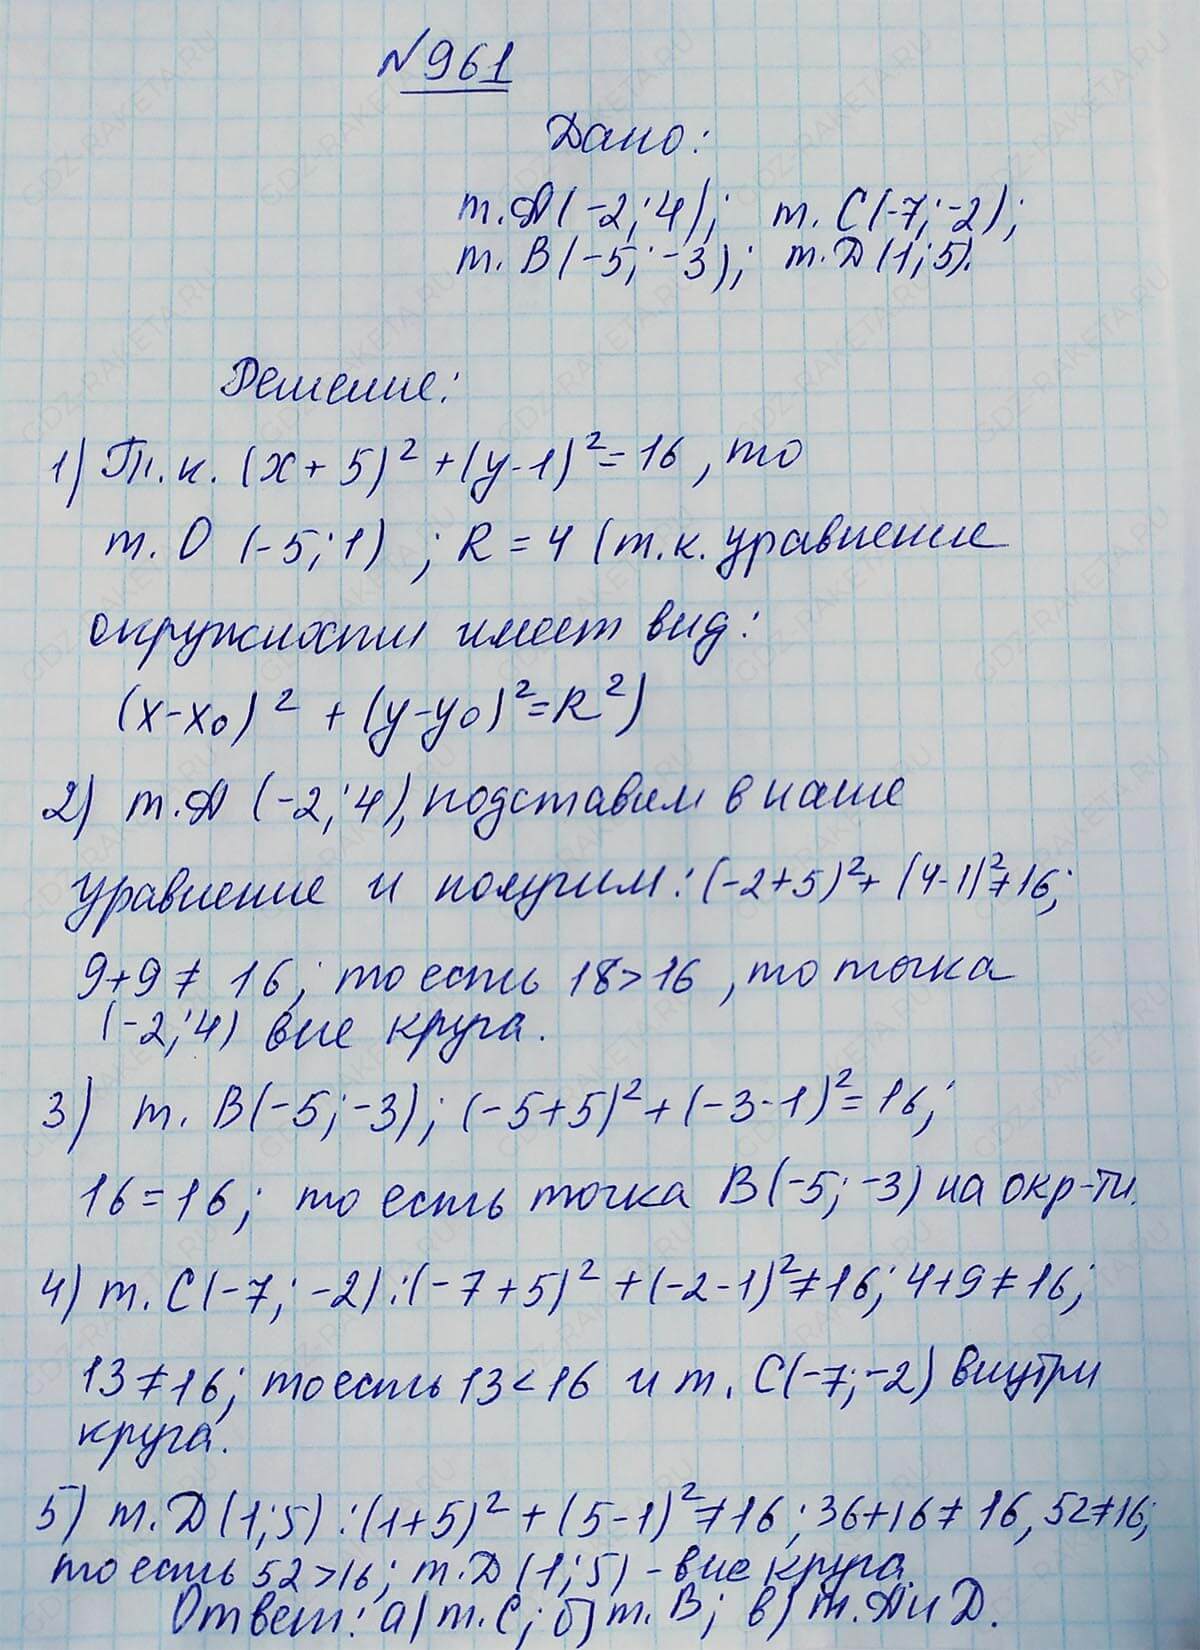 №961
Дано:
т. А(-2; 4); т. С(-7; -2);
т. В(-5; -3); т. Д(1; 5).
Решение:
1) Т. к. (x + 5)² + (y - 1)² = 16, то
т. О (-5; 1) ; R = 4 (т. к. уравнение
окружности имеет вид:
(x - x₀)² + (y - y₀)² = R²)
2) т. А (-2; 4), подставим в наше
уравнение и получим: (-2+5)² + (4-1)² ≠ 16;
9+9 ≠ 16; то есть 18 > 16, то точка
(-2; 4) вне круга.
3) т. В(-5; -3); (-5+5)² + (-3-1)² = 16;
16 = 16; то есть точка В(-5; -3) на окр-ти.
4) т. С(-7; -2): (-7+5)² + (-2-1)² ≠ 16; 4+9 ≠ 16;
13 ≠ 16; то есть 13 < 16 и т. С(-7; -2) внутри
круга.
5) т. Д(1; 5): (1+5)² + (5-1)² ≠ 16; 36+16 ≠ 16, 52 ≠ 16;
то есть 52 > 16; т. Д (1; 5) - вне круга.
Ответ: а) т. С; б) т. В; в) т. А и Д.
GDZ-RAKETA.RU